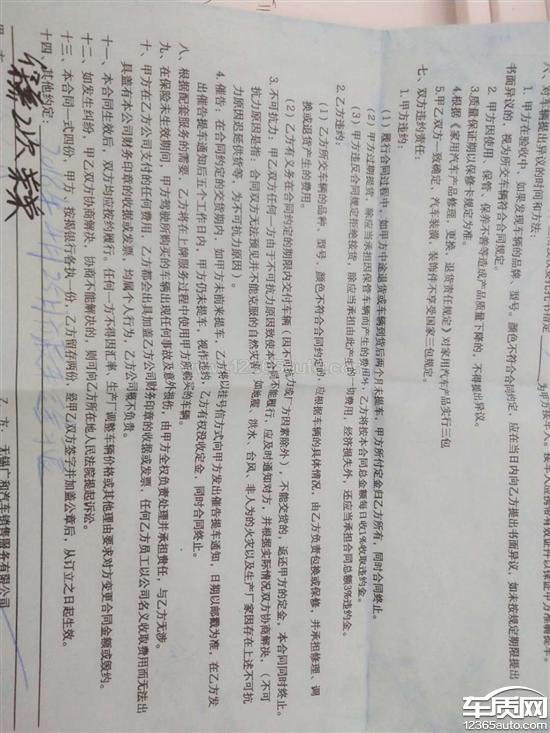 六、对车辆提出异议的时间和方法:
1. 甲方在验收中,如果发现车辆的品牌、型号、颜色不符合合同约定,应在当日内向乙方提出书面异议,如未按规定期限提出
书面异议的,视为所交车辆符合合同规定。
2. 甲方因使用、保管、保养不善等造成产品质量下降的,不得提出异议。
3. 质量保证期以保修手册规定为准。
4. 根据《家用汽车产品修理、更换、退货责任规定》对家用汽车产品实行三包
5. 甲乙双方一致确定,汽车装潢、装饰件不享受国家三包规定。
七、双方违约责任:
1. 甲方违约:
(1)履行合同过程中,如甲方中途退货或车辆到货后两个月未提车,甲方所付定金归乙方所有,同时合同终止。
(2)甲方过期提货,除应当承担因保管车辆而产生的费用外,乙方将按本合同总金额每日收1%收取违约金。
(3)甲方违反合同规定拒绝接货,除应当承担由此产生的一切费用,经济损失外,还应当承担合同总额3%违约金。
2. 乙方违约:
(1)乙方所交车辆的品种、型号、颜色不符合合同约定的,应根据车辆的具体情况,由乙方负责包换或保修,并承担修理、调
换或退货产生的费用。
(2)乙方有义务在合同约定的期限内交付车辆(因不可抗力或厂方因素除外),不能交货的,返还甲方的定金,本合同同时终止。
3. 不可抗力:甲乙双方任何一方由于不可抗力原因致使本合同不能履行,应及时通知对方,并根据实际情况双方协商解决,(不可
抗力原因是指:合同双方无法预见并不能克服的自然灾害,如地震、洪水、台风、非人为的火灾以及生产厂家因存在上述不可抗
力原因迟延发货等,为不可抗力原因)。
4. 催告:在合同约定的交货期内,如甲方未前来提车,乙方将以挂号信方式向甲方发出催告提车通知,日期以邮戳为准,在乙方发
出催告提车通知后五个工作日内,甲方仍未提车,视作违约,乙方有权没收定金,同时合同终止。
八、根据配套服务的需要,乙方将在上牌服务过程中使用甲方所购买的车辆。
九、在保险未生效期间,甲方驾驶所购买的车辆出现任何事故及意外损伤,由甲方全权负责处理并承担责任,与乙方无涉。
十、甲方在乙方公司支付的任何费用,乙方都会出具加盖乙方公司财务印章的收据或发票,任何乙方员工以公司名义收取费用而无法出
具盖有本公司财务印章的收据或发票,均属个人行为,乙方公司概不负责。
十一、本合同生效后,双方均应按约履行。任何一方不得因汇率、生产厂调整车辆价格或其他理由要求对方变更合同金额或毁约。
十二、如发生纠纷,甲乙双方协商解决,协商不能解决的,则可向乙方所在地人民法院提起诉讼。
十三、本合同一式四份,甲方、按揭银行各执一份,乙方留存两份,经甲乙双方签字并加盖公章后,从订立之日起生效。
十四、其他约定:
乙方:无锡广和汽车销售服务有限公司
车质网
www.12365auto.com